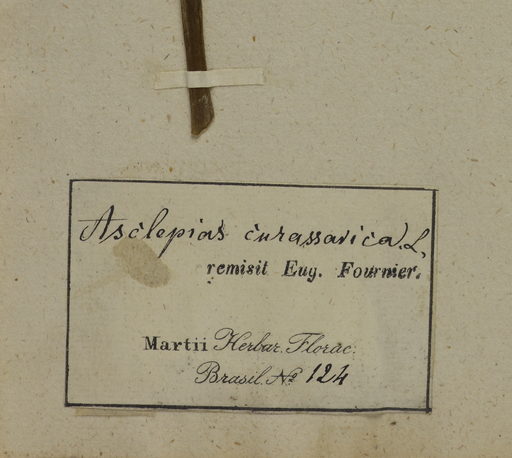 Asclepias curassavica. L.
remisit Eug. Fournier.
Martii Herbar. Florae.
Brasil. Nº 124